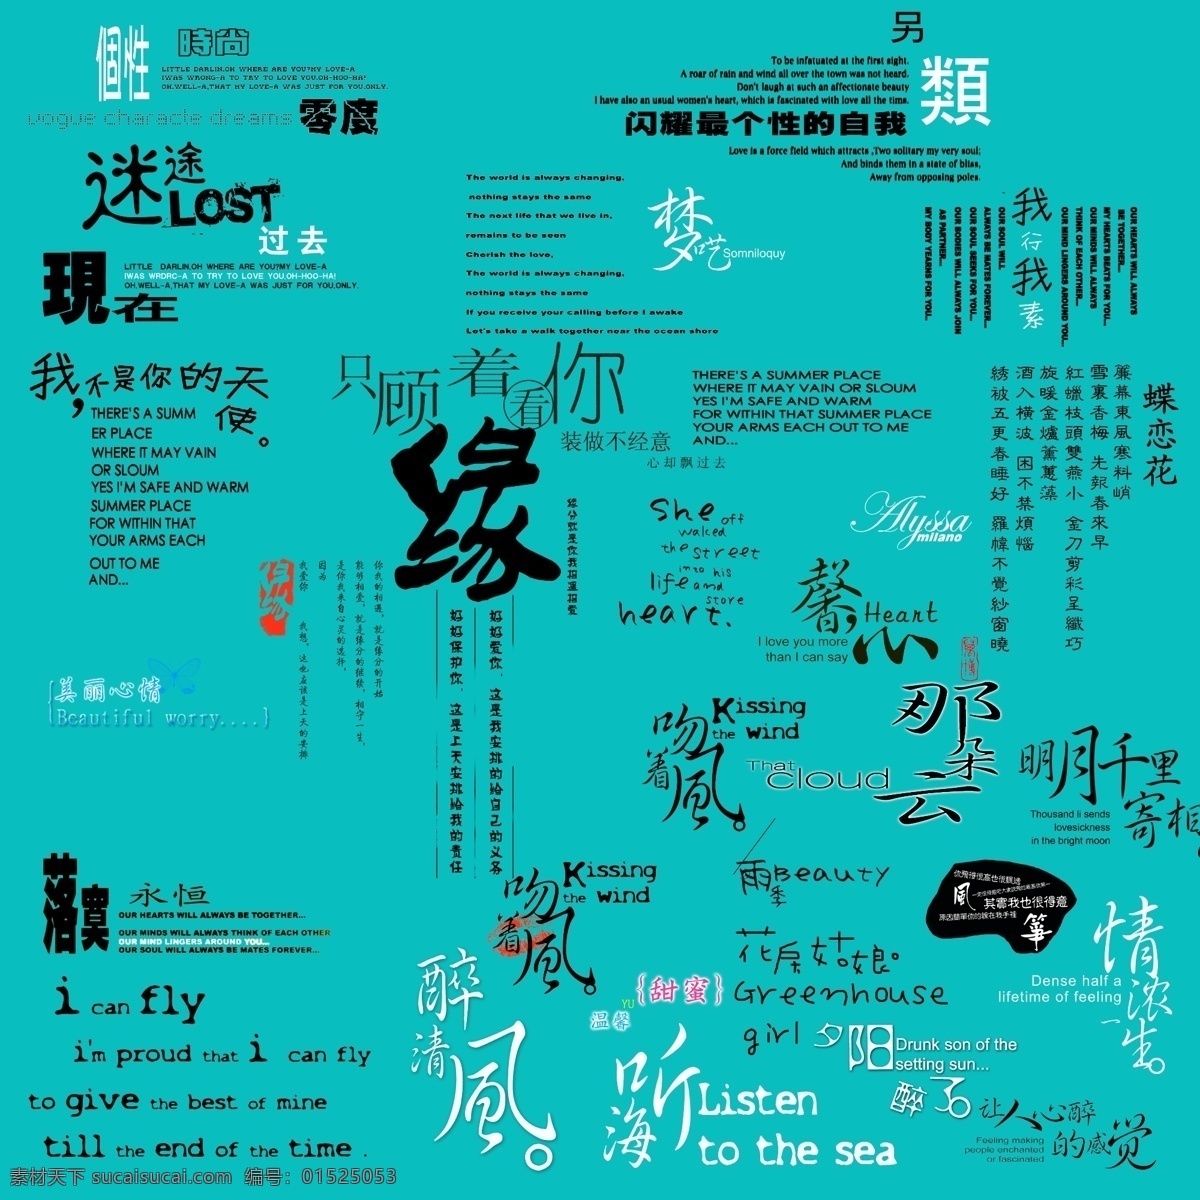 個性 時尚
LITTLE DARLIN,OH WHERE ARE YOU?MY LOVE-A
IWAS WRONG-A TO TRY TO LOVE YOU,OH-HOO-HA!
OH,WELL-A,THAT MY LOVE-A WAS JUST FOR YOU,ONLY.
vogue characte dreams 零度
另
類
To be infatuated at the first sight.
A roar of rain and wind all over the town was not heard.
Don't laugh at such an affectionate beauty
I have also an usual women's heart, which is fascinated with love all the tims.
闪耀最个性的自我
Love is a force field which attracts ,Two solitary my very soul;
And binds them in a state of bliss,
Away from opposing poles.
迷途
LOST
过去
現在
LITTLE DARLIN,OH WHERE ARE YOU?MY LOVE-A
IWAS WRDRC-A TO TRY TO LOVE YOU,OH-HOO-HA!
OH,WELL-A,THAT MY LOVE-A WAS JUST FOR YOU,ONLY.
The world is always changing,
nothing stays the same
The next life that we live in,
remains to be seen
Cherish the love,
The world is always changing,
nothing stays the same
If you receive your calling before I awake
Let's take a walk together near the ocean shore
梦呓
Somniloquy
OUR HEARTS WILL ALWAYS
BE TOGETHER...
MY HEARTS BEATS FOR YOU...
OUR MINDS WILL ALWAYS
THINK OF EACH OTHER...
OUR MIND LINGERS AROUND YOU...
我行我素
OUR SOUL WILL
ALWAYS BE MATES FOREVER...
OUR SOUL SEEKS FOR YOU...
OUR BODIES WILL ALWAYS JOIN
AS PARTNER...
MY BODY YEARNS FOR YOU...
我,不是你的天使。
THERE'S A SUMM
ER PLACE
WHERE IT MAY VAIN
OR SLOUM
YES I'M SAFE AND WARM
SUMMER PLACE
FOR WITHIN THAT
YOUR ARMS EACH
OUT TO ME
AND...
只顾着看你
装做不经意
心却飘过去
THERE'S A SUMMER PLACE
WHERE IT MAY VAIN OR SLOUM
YES I'M SAFE AND WARM
FOR WITHIN THAT SUMMER PLACE
YOUR ARMS EACH OUT TO ME
AND...
蝶恋花
簾幕東風寒料峭
雪裏香梅 先報春來早
紅蠟枝頭雙燕小 金刀剪彩呈纖巧
旋暖金爐薰蕙藻
酒入横波 困不禁煩惱
綉被五更春睡好 羅幃不覺紗窗曉
缘
缘分就是你我相遇相爱
好好爱你,这是我安排的给自己的义务
好好保护你,这是上天安排给我的责任
你我的相遇,就是缘分的开始
能够相爱,就是缘分的继续,相守一生,
是你我来自心灵的选择,
因为
我爱你 我想,这也应该是上天的安排
She off
walked
the street
into his
life and
store
heart.
Alyssa
milano
馨,心
Heart
I love you more
than I can say
美丽心情
{Beautiful worry....}
吻着風。
Kissing
the wind
那朵云
That cloud
明月千里寄相
Thousand li sends
lovesickness
in the bright moon
落寞 永恒
OUR HEARTS WILL ALWAYS BE TOGETHER...
OUR MINDS WILL ALWAYS THINK OF EACH OTHER
OUR MIND LINGERS AROUND YOU...
OUR SOUL WILL ALWAYS BE MATES FOREVER...
吻着風。
Kissing
the wind
雨季 Beauty
你飛得很高也很飄逸
風
其實我也很得意
原因簡單你的線在我手裡
箏
情浓一生。
Dense half a
lifetime of feeling
i can fly
i'm proud that i can fly
to give the best of mine
till the end of the time .
醉清風。
{甜蜜}
YU
温馨
花房姑娘。
Greenhouse
girl
夕阳
Drunk son of the
setting sun...
醉了。
听海
Listen
to the sea
让人心醉的感觉
Feeling making
people enchanted
or fascinated
素材天下 sucaisucai.com 编号：01525053